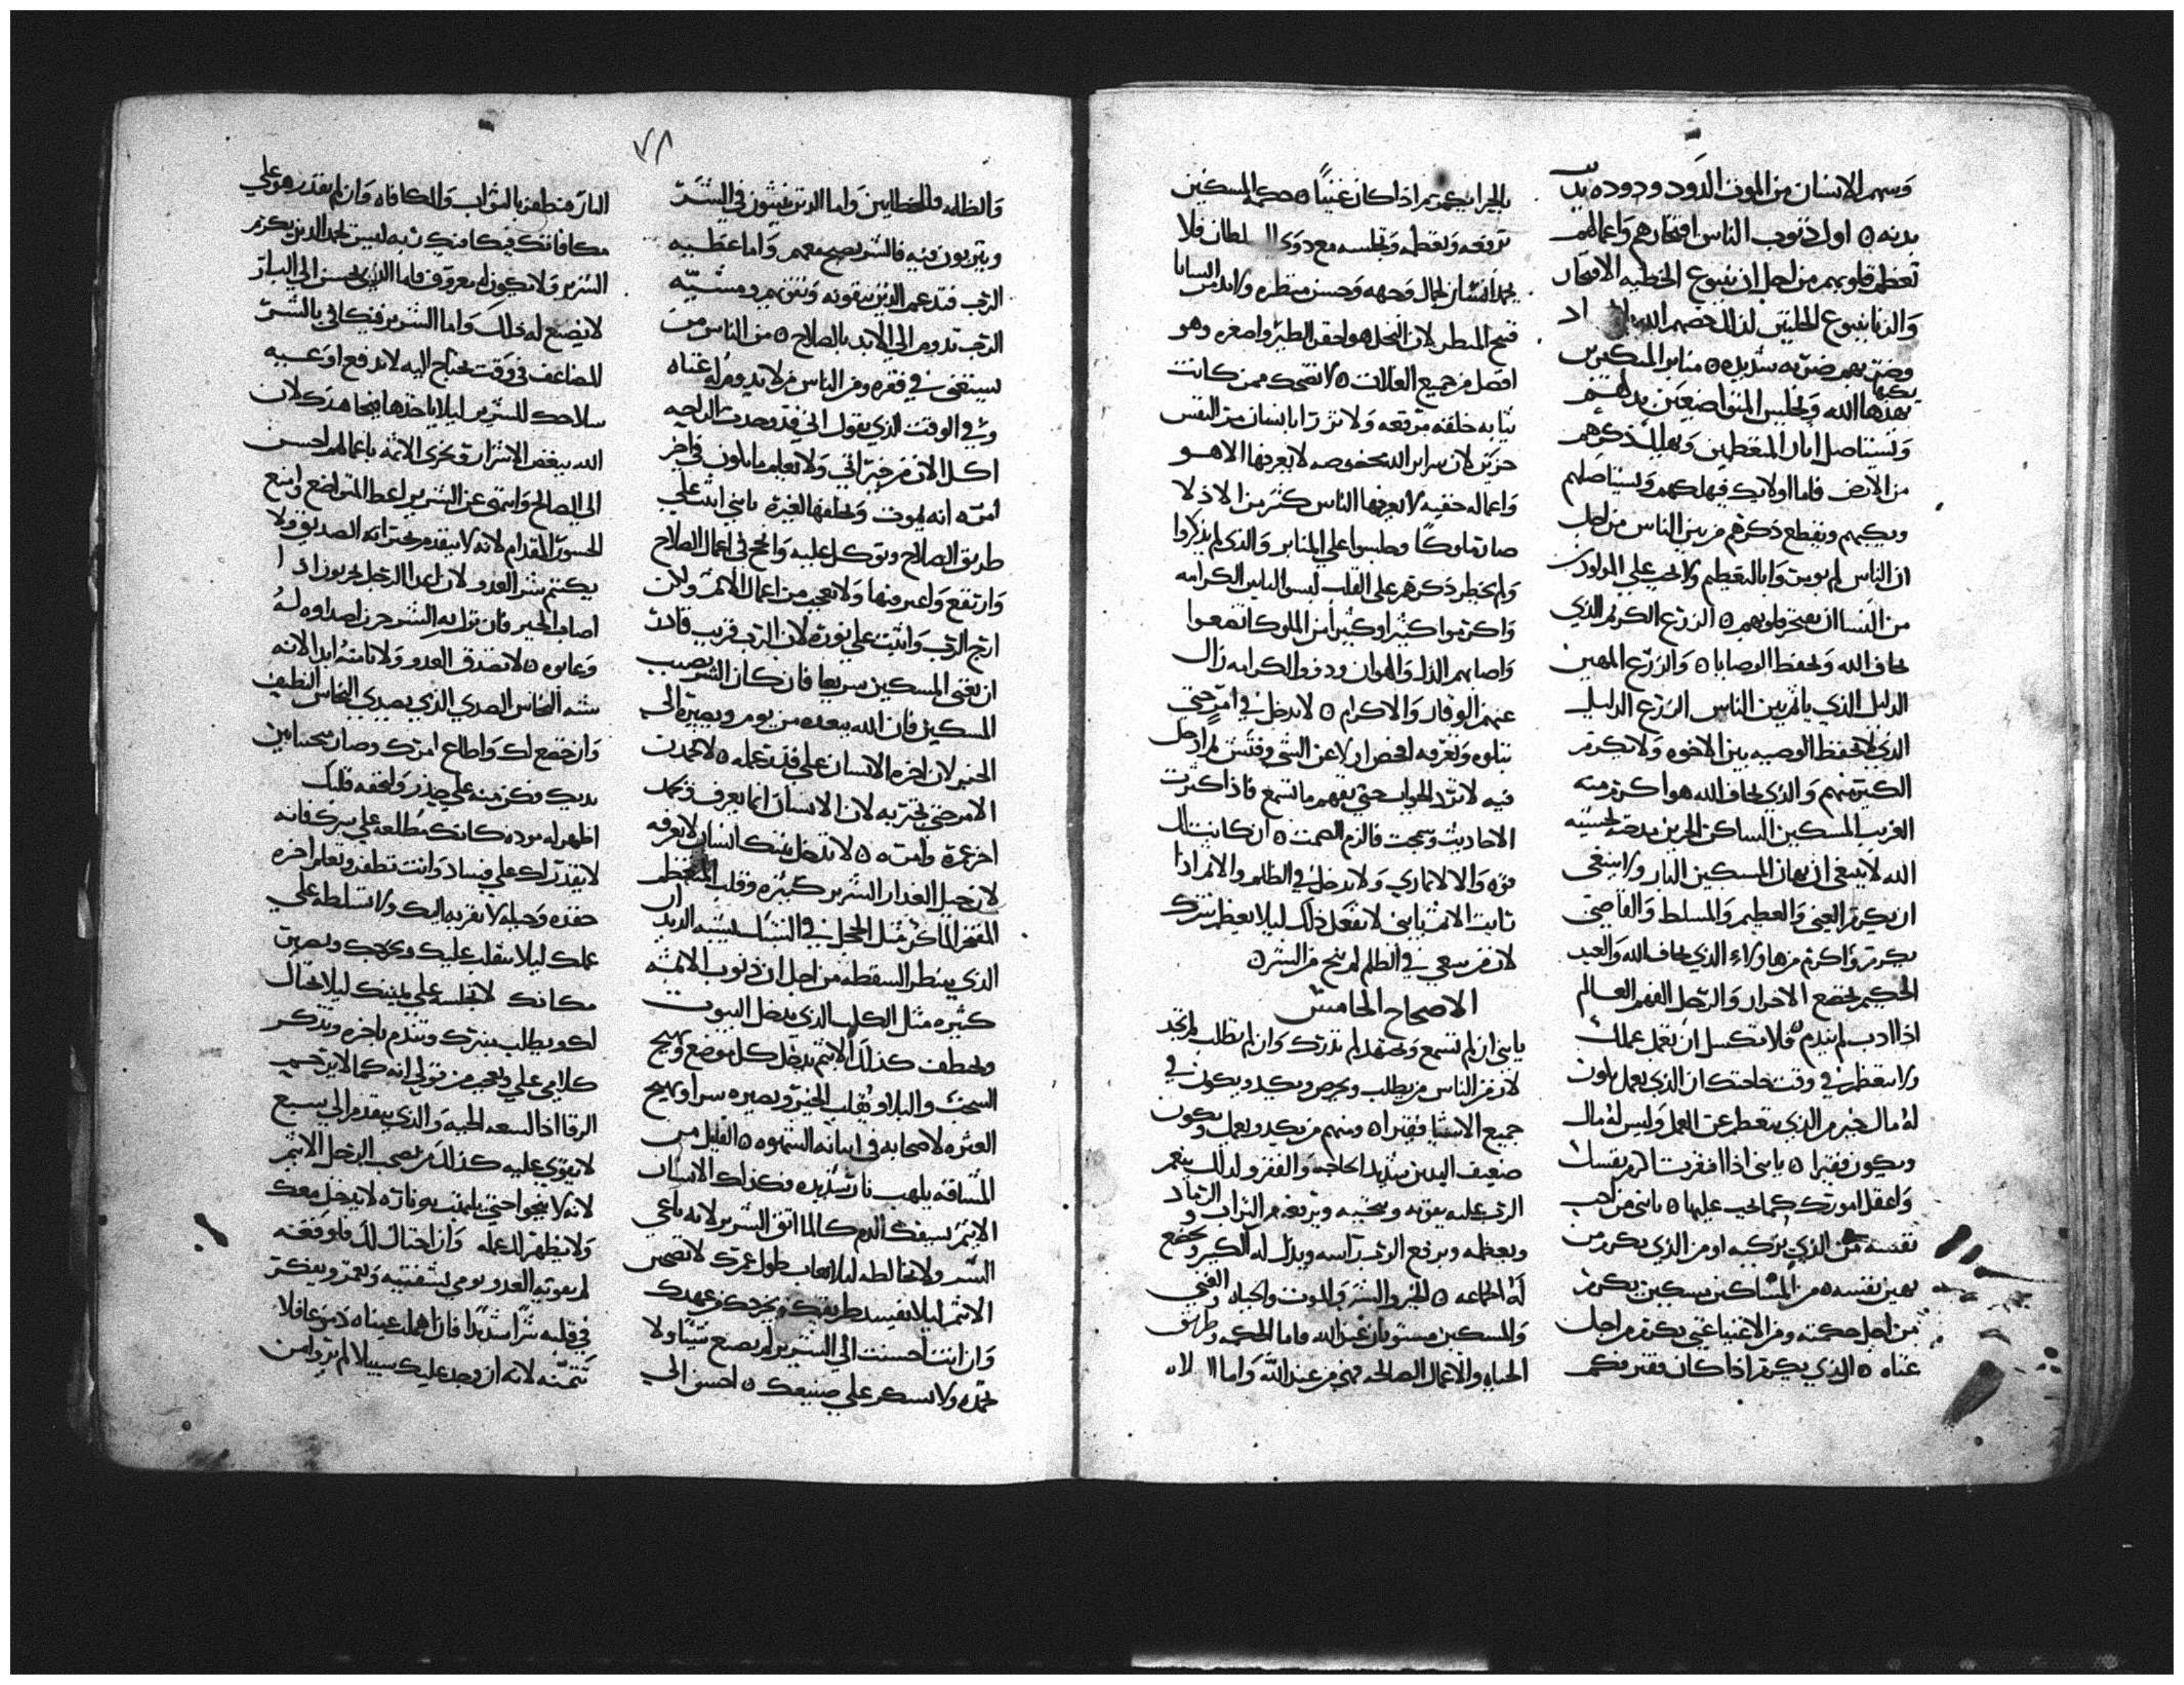 وسهم الانسان من الموت الدود ودوده يدب
بدنه ۞ اول ذنوب الناس افتخارهم واعمالهم
تعظم قلوبهم من اجل ان ينبوع الخطيه الافتخار
والزنا ينبوع الخليتين لذلك خصهم الله
وضربهم ضربه شديده ۞ منابر المتكبرين
يكبها
يهدها الله ويجلس المتواضعين بدلهم
ويستاصل اثار المتعظمين ويهلك ذكرهم
من الارض فاما اولايك فيهلكهم ويستاصلهم
ويكبهم ويقطع ذكرهم من بين الناس من اجل
ان الناس لم يوبيت وا بالتعظيم ولا يحب علي المولودن
من النسا ان يفتخر قلوبهم ۞ الزرع الكريم الذي
يخاف الله ويحفظ الوصايا ۞ والزرع المهين
الدليل الذي ياثم بين الناس الزرع الدليل
الذي لا يحفظ الوصيه بين الاخوه ولا يكرم
الكبير منهم والذي يخاف الله هو اكرم منه
الغريب المسكين الساكن الحزين مدحته لخشية
الله لا ينبغي ان يهان المسكين البار ولا ينبغي
ان يكرم الغني والعظيم والمسلط والقاضي
يكرم واكرم من هاولاء الذي يخاف الله والعبد
الحكيم تخضع الاحرار والرجل الفهم العالم
اذا ادب لم يندم ۞ لا تكسل ان تعمل عملك
ولا تتعظم في وقت حاجتك ان الذي يعمل يكون
له مال خير من الذي يتعظم عن العمل وليس له مال
ويكون فقيرا ۞ يابني اذا افتقرت اكرم نفسك
واعقل امورك كما يجب عليها ۞ يابني من احب
نفسه من الذي يزكيه او من الذي يكرم من
يهين نفسه ۞ من المساكين مسكين يكرم
من اجل حكمته ومن الاغنيا غني يكرم من اجل
غناه ۞ الذي يكرم اذا كان فقير فكم
بالحرا يكرم اذا كان غنيا ۞ حكمة المسكين
ترفعه وتعظمه وتجلسه مع ذوي السلطان فلا
يحمد انسان لجمال وجهه وحسن منظره ولا يدنس انسانا
قبيح المنظر لان النحل هو احقر الطير واصغره وهو
افضل من جميع الغلات ۞ لا تضحك ممن كانت
ثيابه خلقه مرقعه ولا تزرا بانسان مر النفس
حزين لان سراير الله مخفوضه لا يعرفها الا هو
واعماله خفيه لا يعرفها الناس كثير من الاذلا
صاروا ملوكا وجلسوا علي المنابر والذي لم يذكروا
ولم يخطر ذكرهم علي القلب لبسوا لباس الكرامه
واكرموا كثيرا وكثيرا من الملوك اتضعوا
واصابهم الذل والهوان وذو والكرامه زال
عنهم الوقار والاكرام ۞ لا تدخل في امر حتي
تتلوه وتعرفه افحص اولا عن الشي وفتش ثم ادخل
فيه لا ترد الجواب حتي تفهم ما تسمع فاذا كثرت
الاحاديث وسمجت فالزم الصمت ۞ ان كانت لك
قوه والا لا تماري ولا تدخل في الظلم والامر اذا
ثابت الاثم يابني لا تفعل ذلك ليلا يعظم شرك
لان من يسعي في الظلم لم ينج من الشر ۞
الاصحاح الخامس
يابني ان لم تسمع وتجتهد لم تدرك وان لم تطلب لم تجد
لان من الناس من يطلب ويحرص ويكد ويكون في
جميع الاشيا فقيرا ۞ ومنهم من يكد ويعمل ويكون
ضعيف اليدين شديد الحاجه والفقر ولذلك ينعم
الرب عليه بقوته وينجيه ويرفعه من التراب والرماد
ويعظمه ويرفع الرب راسه ويذل له الكبير ويخضع
له الجماعه ۞ الخير والشر والموت والحياه والغني
والمسكين مستويان عند الله فاما الحكمه وطريق
الحياه والاعمال الصالحه فهي من عند الله واما الضلاله
٧٨
والظلمه فللخطايين واما الذين ينشون في الشر
ويتربون فيه فالشر يصح معهم واما عطيه
الرب فتدعم الذين يتقونه وتقيمهم ومشيه
الرب تدوم الي الابد بالصلاح ۞ من الناس من
يستغني في فقره ومن الناس من لا يدوم له غناه
وفي الوقت الذي يقول اني قد وجدت الراحه
اكل الان من خيراتي ولا يعلم ما يكون في اخر
امره انه يموت ويخلفها لغيره يابني اثبت علي
طريق الصلاح وتوكل عليه والج في اعمال الصلاح
وارتفع واعبر منها ولا تعجب من اعمال الاثم ولكن
ارج الرب واثبت علي نوره لان الرب قريب قادر
ان يغني المسكين سريعا فان كان الشر يصيب
المسكين فان الله يبعده من يوم ويصيره الي
الخير لان اخرة الانسان علي قدر عمله ۞ لا تحمدن
الامر حتي تختبره لان الانسان انما يعرف ويحمد
اخر عمره وامره ۞ لا تدخل بيتك انسان لا تعرفه
لان حيل الغدار الشرير كثيره وقلب المتعظم
المفتخر الماكر مثل الحجل في الشباك يشبه الديدبان
الذي ينظر السقطه من اجل ان ذنوب الاثمه
كثيره مثل الكلب الذي يدخل البيوت
ويخطف كذلك الاثم يدخل كل موضع ويهيج
السجس والبلا ويقلب الخير ويصيره سرا ويهيج
العثره لاصحابه في اسبابه الشهوه ۞ القليل من
المشاقه يلهب نار شديده وكذلك الانسان
الاثيم يسفك الدم كالما اتق الشرير لانه باغي
الشر ولا تخالطه ليلا تعاب طول عمرك لا تصحبن
الاثيم ليلا يفسد طريقك ويخرجك من عهدك
وان انت احسنت الي الشرير لم يصنع شيا ولا
تحمد ولا تسكر علي صنيعك ۞ احسن الي
البار فتظفر بالثواب والمكافاه وان لم يقدر هو علي
مكافاتك فيكافيك ربه ليس تحمد الذي يكرم
الشرير ولا يكون له معروف فاما الذي يحسن الي البار
لا يضيع له ذلك واما الشرير فيكافي بالشر
المضاعف في وقت يحتاج اليه لا تدفع اوعيه
سلاحك للشرير ليلا ياخذها فيجاهدك لان
الله يبغض الاشرار ويخزي الاثمه باعمالهم احسن
الي الصالح وامتنع عن الشرير اعط المتواضع وامنع
الحسور المقدام لانه لا يتقدم بخيراته الصديق ولا
يكتم شر العدو لان اعدا الرجل يحزنون اذا
اصاب الخير فان نزل به الشر حزن اصدقاوه له
وعابوه ۞ لا تصدق العدو ولا تامنه ابدا لانه
شبه النحاس الصدي الذي يصدي النحاس النظيف
وان خضع لك واطاع امرك وصار منحنيا بين
يديك فكن منه علي حذر وليخفه قلبك
اظهر له مودة كانك مطلعه علي سرك فانه
لا يقدر لك علي فساد وانت تظفر وتعلم اخره
حقده وحيله لا تقربه اليك ولا تسلطه علي
عملك ليلا ينقلب عليك ويخرجك ويصير في
مكانك لا تجلسه علي يمينك ليلا يحتال
لك ويطلب منبرك وتندم باخره وتذكر
كلامي علي وتعجب من قولي انه كما لا يرحم
الرقا اذا لسعه الحيه والذي يتقدم الي سبع
لا يقوي عليه كذلك من يصحب الرجل الاثيم
لانه لا ينجو حتي تلهب به ناره لا يدخل معك
ولا يظهر لك عمله وان احتال لك فلو فقته
لم يقويه العدو يومي بشفتيه ويغمز ويفكر
في قلبه شرا شديدا فان اهملت عيناه دموعا فلا
تتمنه لانه ان وجد عليك سبيلا لم يرو من